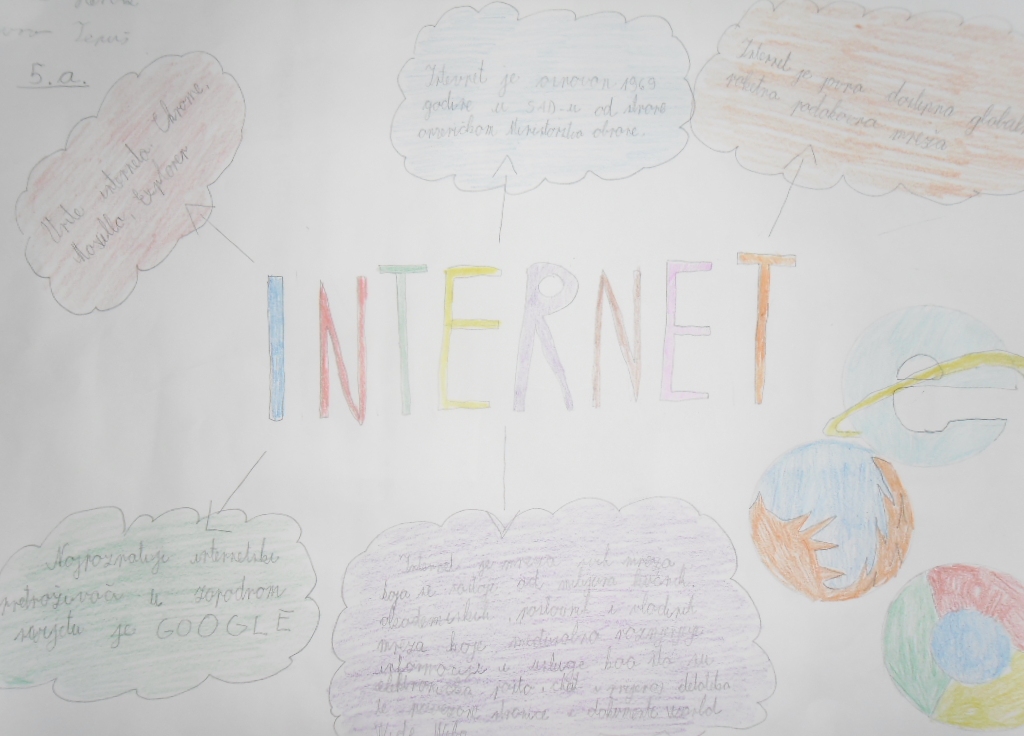 5.a.
Vrste interneta: Chrome,
Mozilla, Explorer
Internet je osnovan 1969
godine u SAD-u od strane
američkom Ministarstva obrane.
Internet je javno dostupna globalna
paketna podatkovna mreža
INTERNET
Najpoznatije internetski
pretraživači u zapadnom
svijetu je GOOGLE
Internet je mreža svih mreža
koja se sastoji od milijuna kućnih,
akademskih, poslovnih i vladinih
mreža koje međusobno razmjenjuju
informacije i usluge kao što su
elektronička pošta, chat i prijenos datoteka
te povezane stranice i dokumente World
Wide Weba